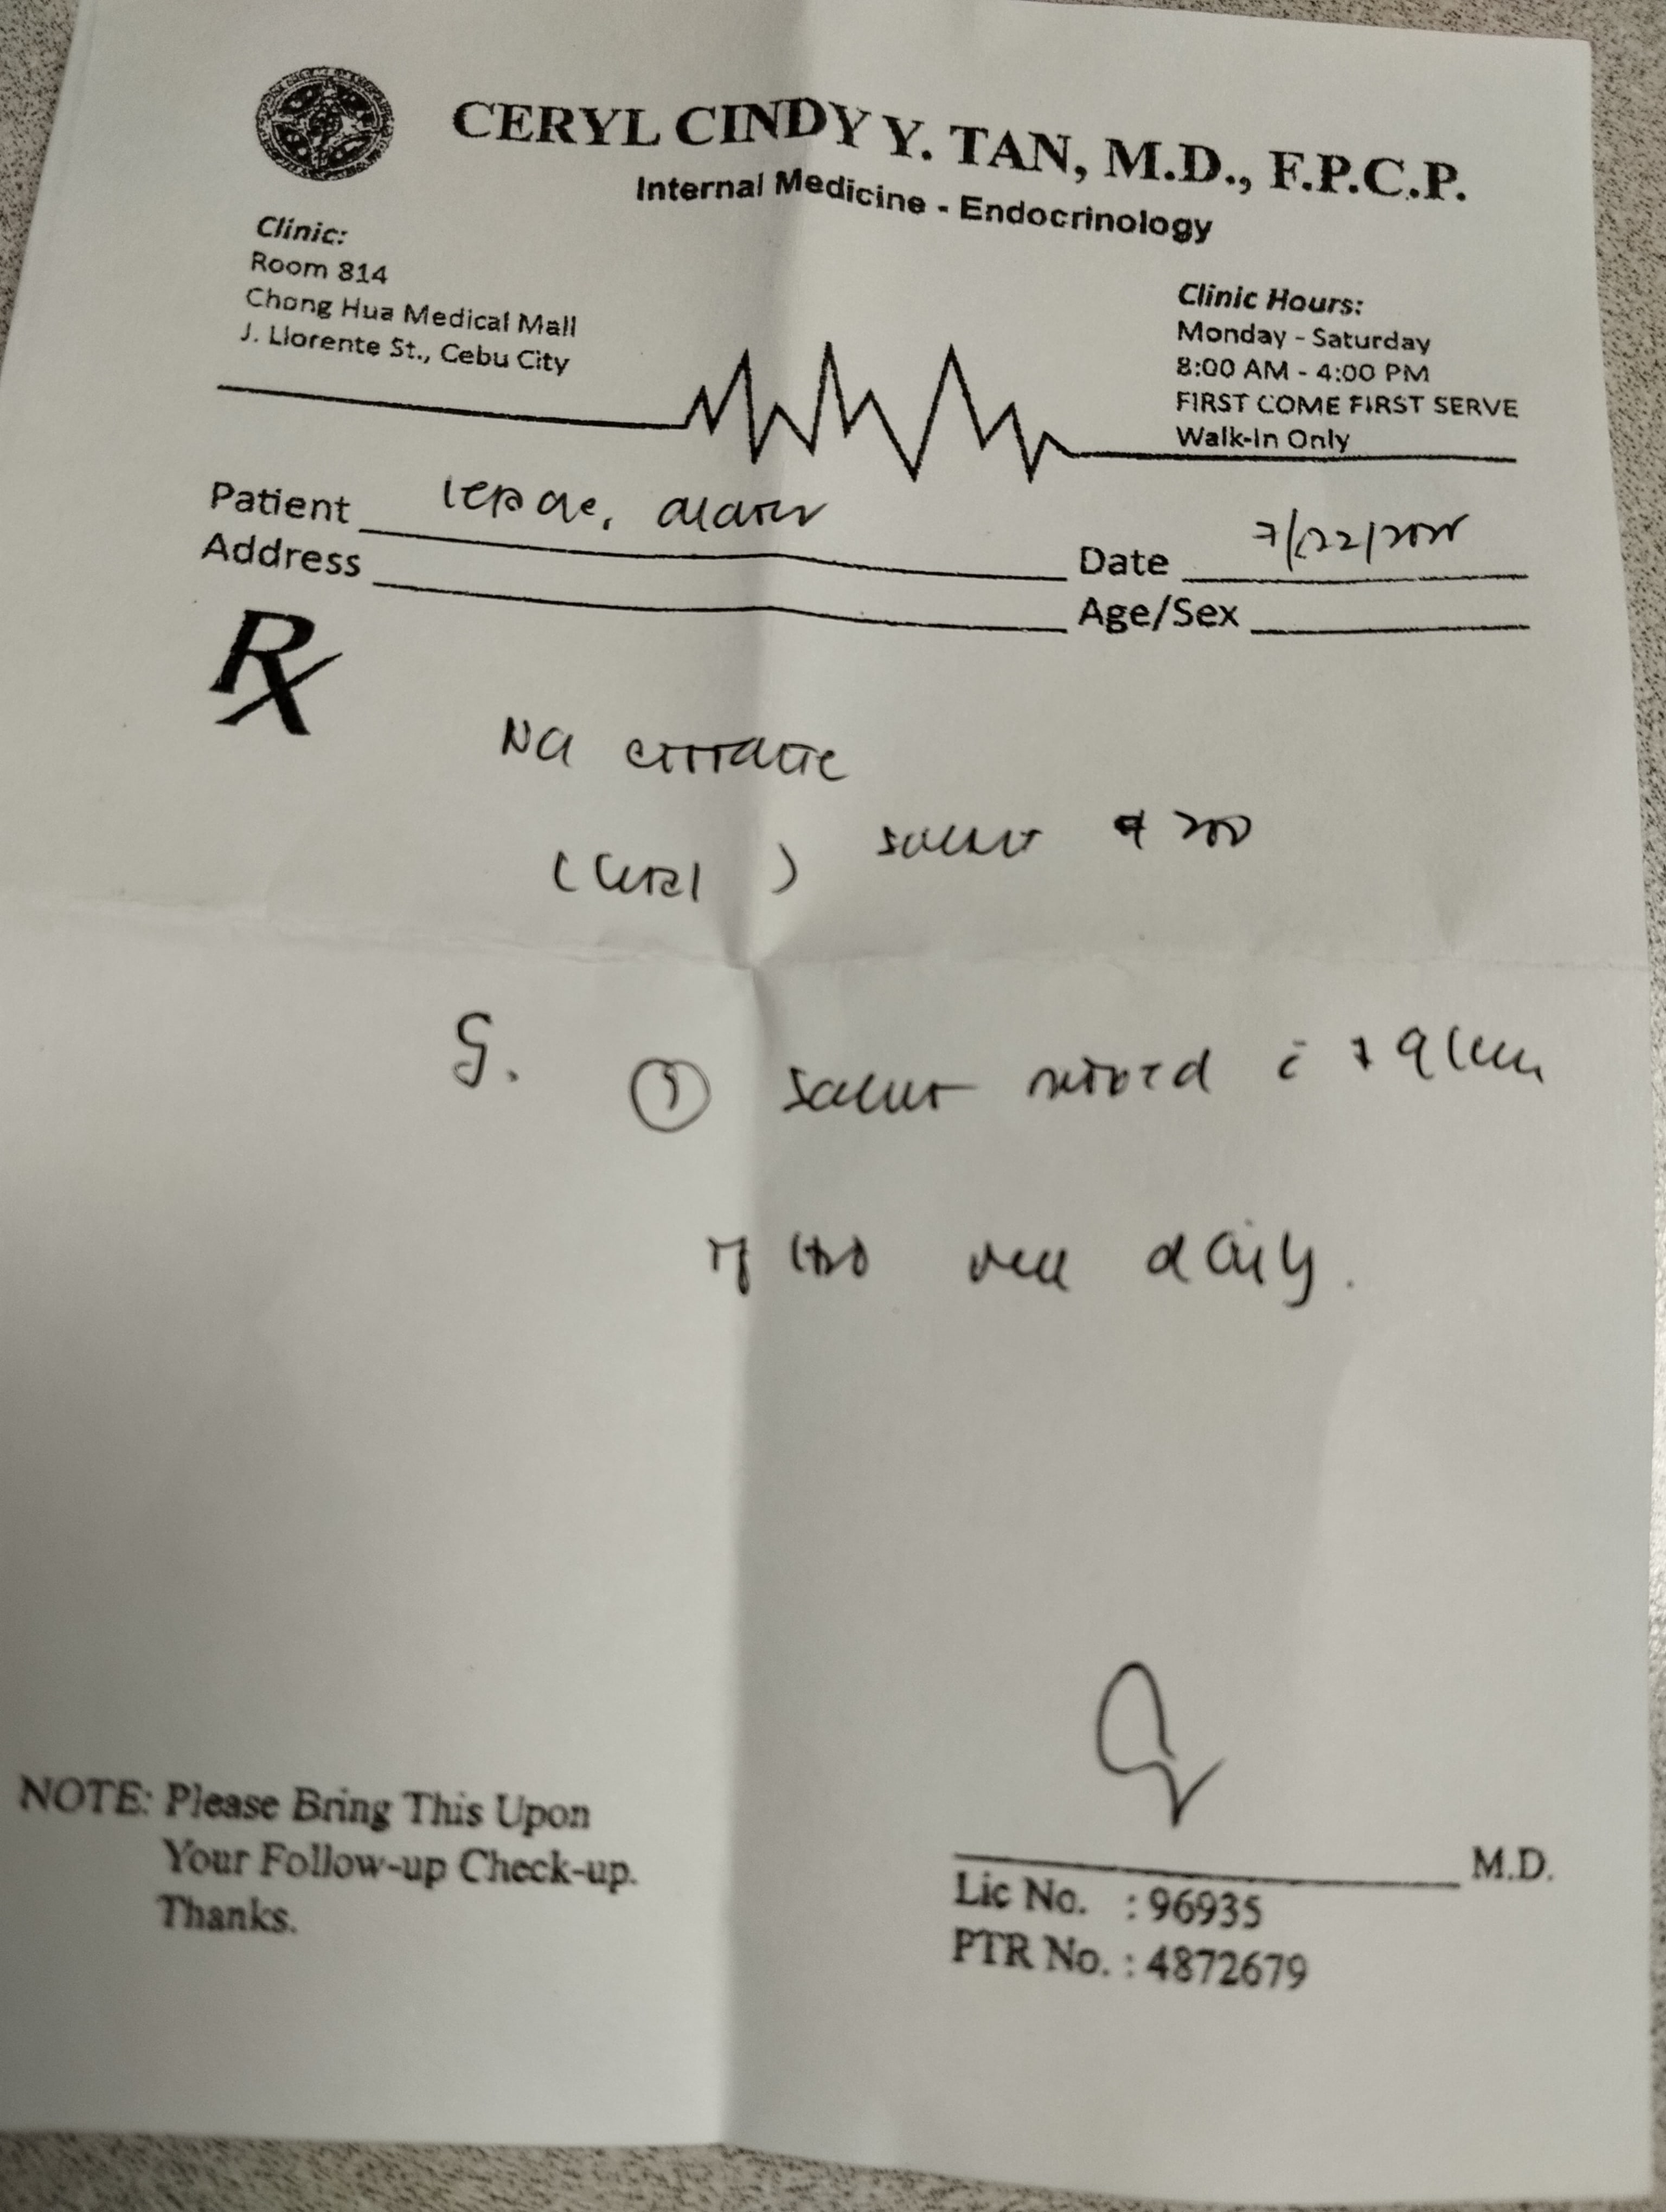 CERYL CINDY Y. TAN, M.D., F.P.C.P.
Internal Medicine - Endocrinology
Clinic:
Room 814
Chong Hua Medical Mall
J. Llorente St., Cebu City
Clinic Hours:
Monday - Saturday
8:00 AM - 4:00 PM
FIRST COME FIRST SERVE
Walk-In Only
Patient
Date 7/22/
Address
Age/Sex
Rx
Na citrate
sachet
S. sachet mixed
daily.
NOTE: Please Bring This Upon
Your Follow-up Check-up.
Thanks.
M.D.
Lic No. : 96935
PTR No. : 4872679